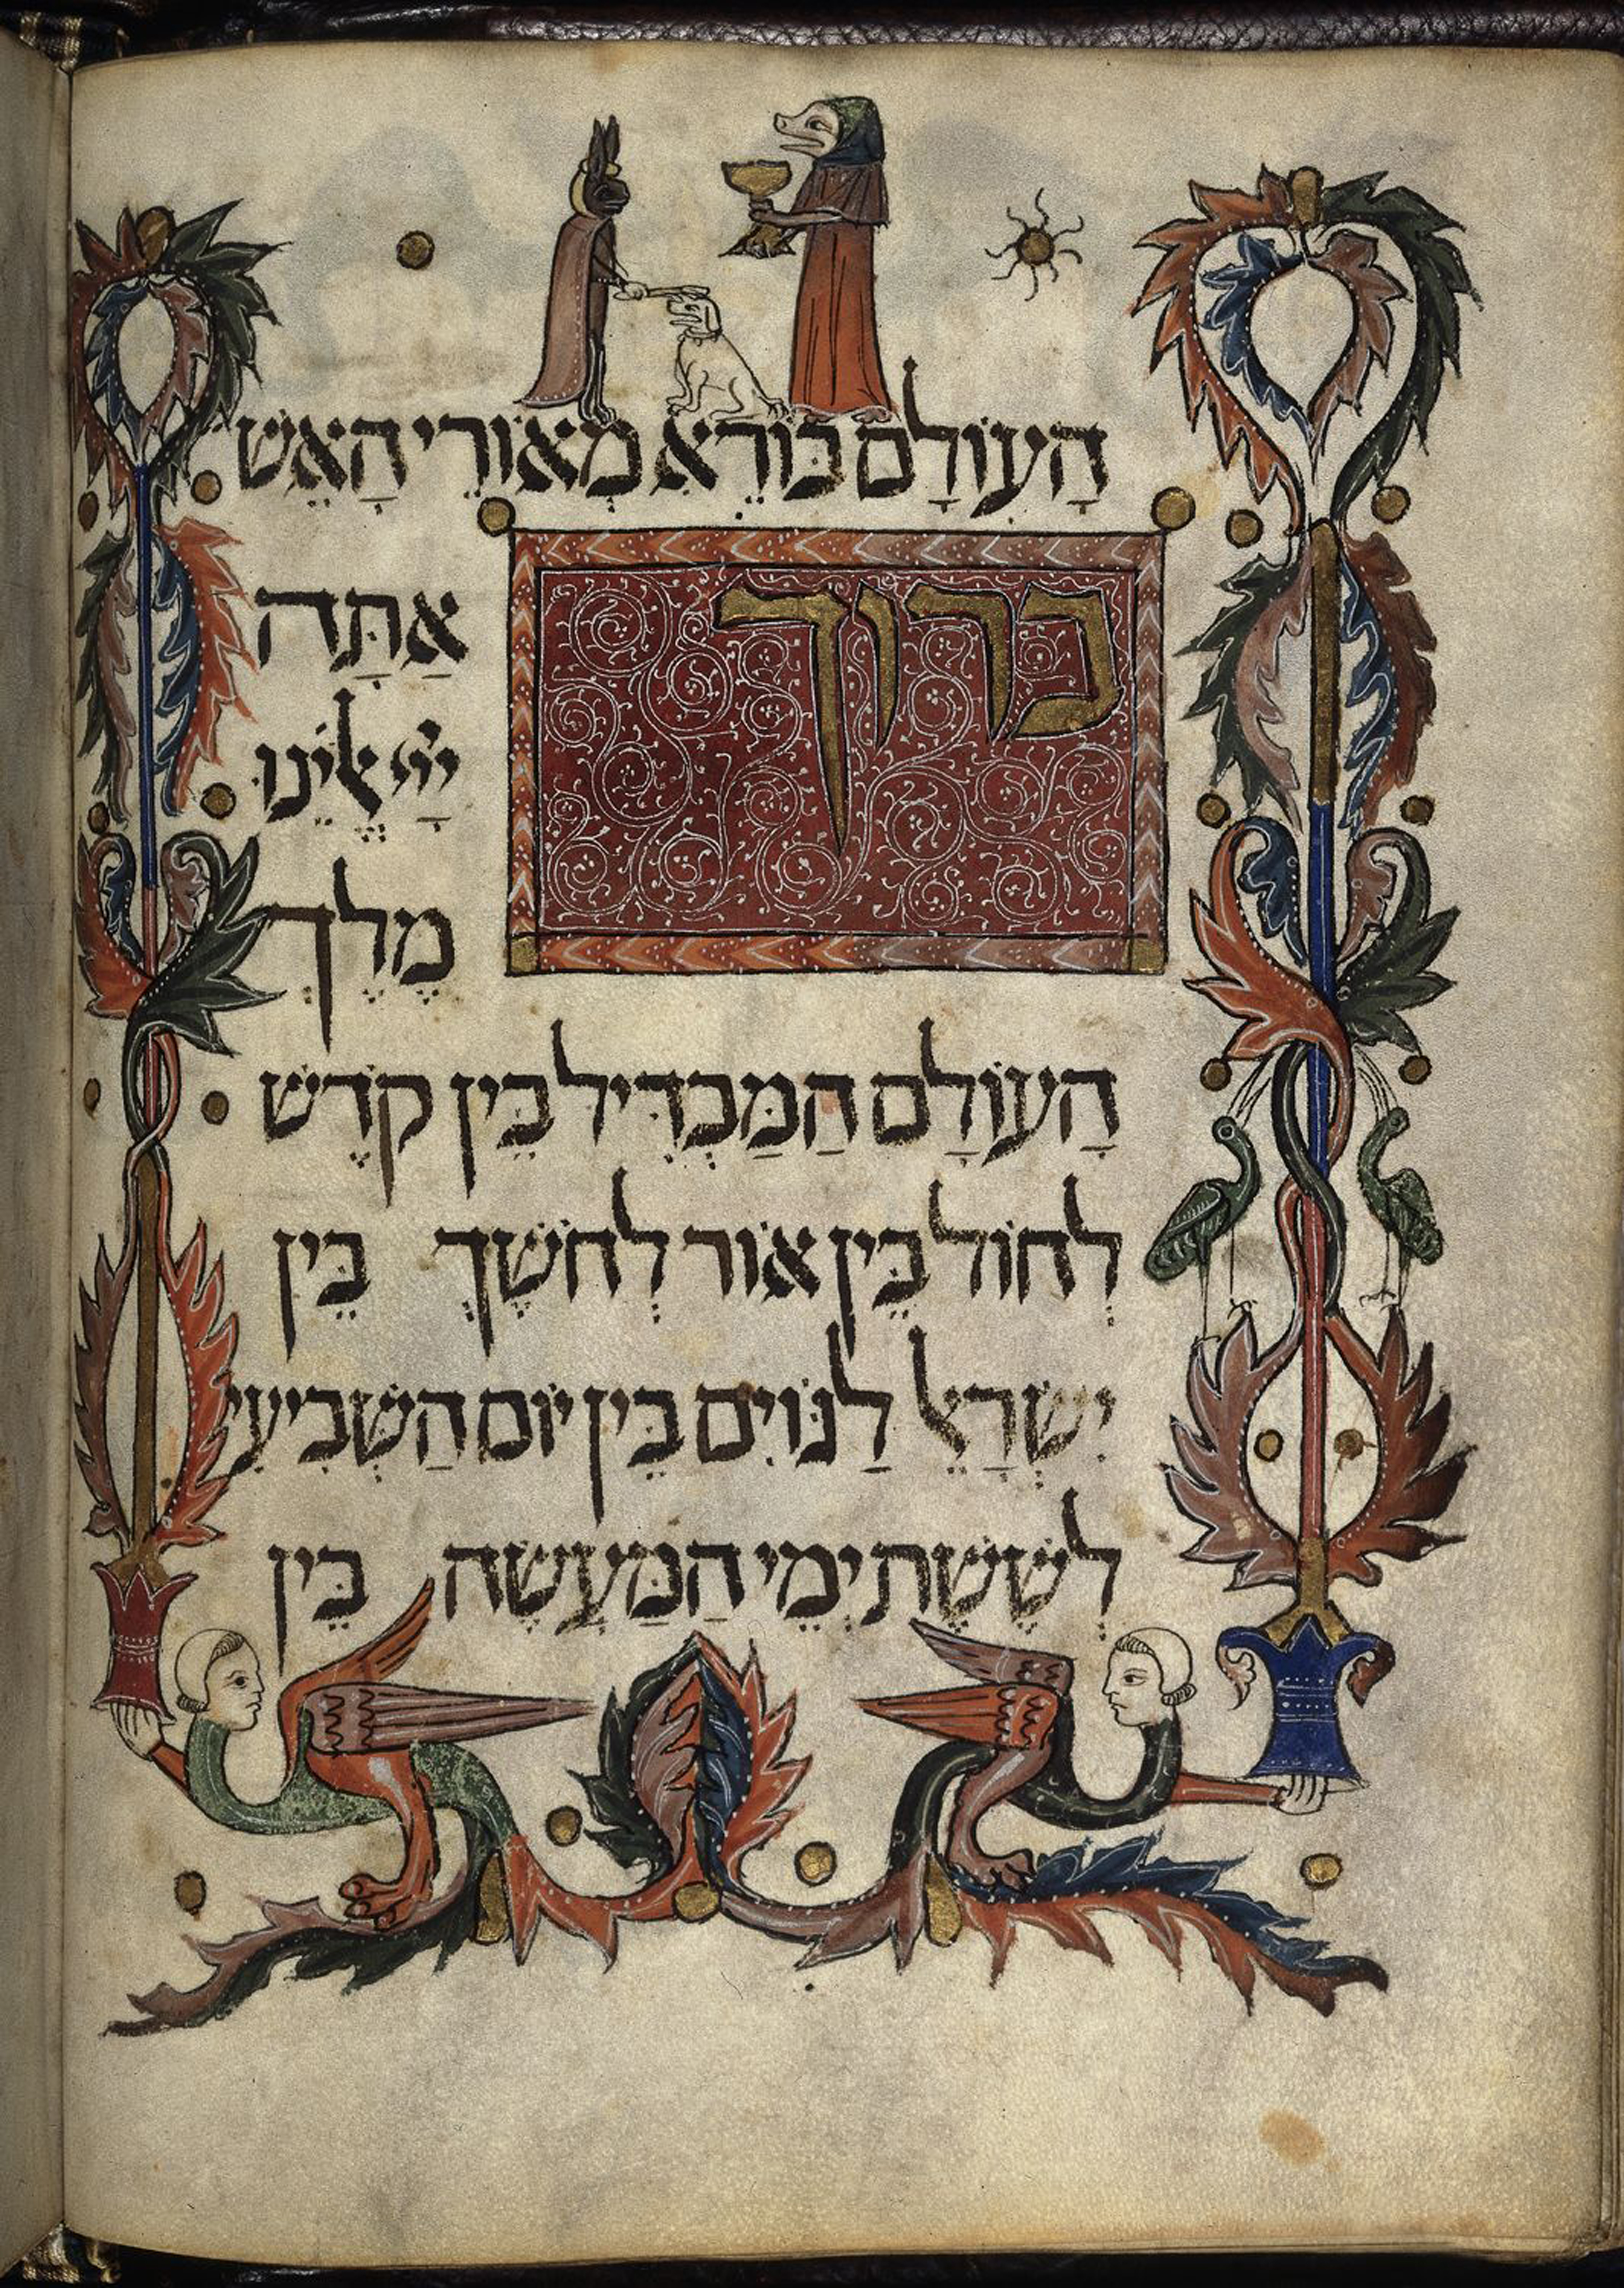 הָעוֹלָם בּוֹרֵא מְאוֹרֵי הָאֵשׁ
ברוך
אַתָּה
יְיָ אֱלֵינוּ
מֶלֶךְ
הָעוֹלָם הַמַּבְדִּיל בֵּין קֹדֶשׁ
לְחוֹל בֵּין אוֹר לְחֹשֶׁךְ בֵּין
יִשְׂרָאֵל לַגּוֹיִם בֵּין יוֹם הַשְּׁבִיעִי
לְשֶׁשֶׁת יְמֵי הַמַּעֲשֶׂה בֵּין